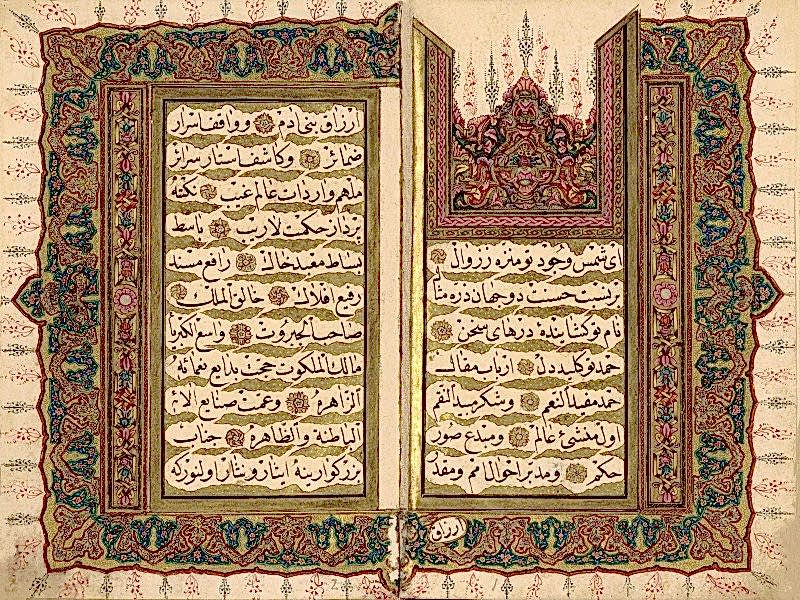 ای شمس وجود تو منزه ز زوال
حسنت دو جهان ذره مثال
نام تو کشاینده درهای سخن
حمد تو کلید ارباب مقال
حمد مفید النعم وشکر مبید النقم
اول منشئ عالم ومبدع صور
حکم ومدبر احوال امم ومقدر
ارزاق
ارزاق بنی آدم وواقف اسرار
ضمائر وکاشف استار سرائر
ملهم واردات عالم غیب نکته
پرداز حکمت لاریب باسط
بساط خاک رافع مسند
رفیع افلاک خالق الملک
صاحب الجبروت واسع الکبریا
مالک الملکوت بدایع نعمائه
الزاهرة وعمت صنایع الائه
الباطنة والظاهرة جناب
بزرکوارینه ایثار ونثار اولنور که